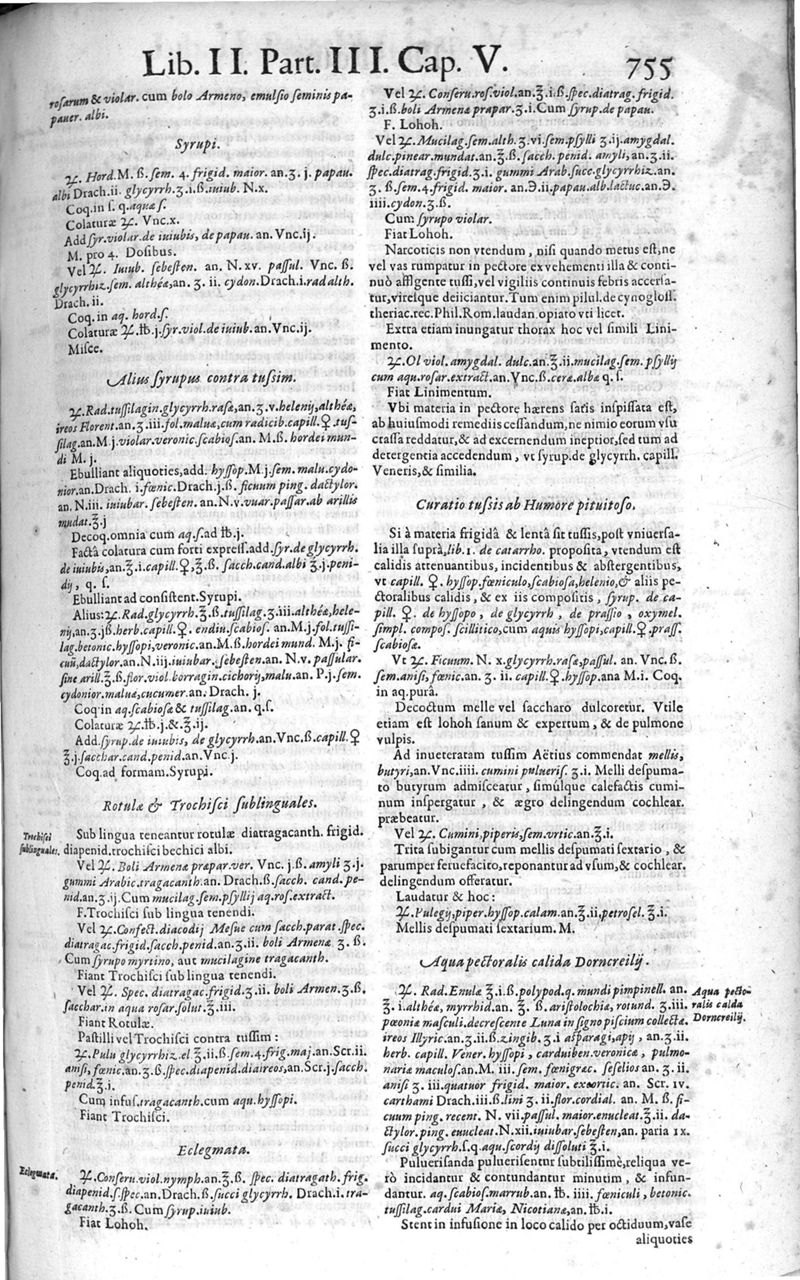 Lib. II. Part. III. Cap. V. 755
rosarum & violar. cum bolo Armeno, emulsio seminis pa-
pauer. albi.
Syrupi.
℞. Hord. M. ß. sem. 4. frigid. maior. an. ʒ. j. papau.
albi Drach. ii. glycyrrh. ʒ. i. ß. iuiub. N. x.
Coq. in s. q. aquæ s.
Colaturæ ℞. Vnc. x.
Add syr. violar. de iuiubis, de papau. an. Vnc. ij.
M. pro 4. Dosibus.
Vel ℞. Iuiub. sebesten. an. N. xv. passul. Vnc. ß.
glycyrrhiz. sem. altheæ, an. ʒ. ii. cydon. Drach. i. rad alth.
Drach. ii.
Coq. in aq. hord. s.
Colaturæ ℞. ℔. j. syr. viol. de iuiub. an. Vnc. ij.
Misce.
Alius syrupus contra tussim.
℞. Rad. tussilagin. glycyrrh. rasæ, an. ʒ. v. helenij, altheæ,
ireos Florent. an. ʒ. iii. fol. maluæ, cum radicib. capill. ♀. tus-
silag. an. M. j. violar. veronic. scabios. an. M. ß. hordei mun-
di M. j.
Ebulliant aliquoties, add. hyssop. M. j. sem. malu. cydo-
nior. an. Drach. i. fœnic. Drach. j. ß. ficuum ping. dactylor.
an. N. iii. iuiubar. sebesten. an. N. v. vuar. passar. ab arillis
mudat. ℥. j
Decoq. omnia cum aq. s. ad ℔. j.
Factâ colatura cum forti express. add. syr. de glycyrrh.
de iuiubis, an. ℥. i. capill. ♀, ℥. ß. sacch. cand. albi ℥. j. peni-
dij, q. s.
Ebulliant ad consistent. Syrupi.
Alius: ℞. Rad. glycyrrh. ℥. ß. tussilag. ʒ. iii. altheæ, hele-
nij, an. ʒ. jß. herb. capill. ♀. endiu. scabios. an. M. j. fol. tussi-
lag. betonic. hyssopi, veronic. an. M. ß. hordei mund. M. j. fi-
cuū, dactylor. an. N. iij. iuiubar. sebesten. an. N. v. passular.
sine arill. ℥. ß. flor. viol. borragin. cichorij, malu. an. P. j. sem.
cydonior. maluæ, cucumer. an. Drach. j.
Coq in aq. scabiosæ & tussilag. an. q. s.
Colaturæ ℞. ℔. j. &. ℥. ij.
Add. syrup. de iuiubis, de glycyrrh. an. Vnc. ß. capill. ♀
℥. j. sacchar. cand. penid. an. Vnc. j.
Coq. ad formam. Syrupi.
Rotulæ & Trochisci sublinguales.
Trochisci
sublinguales.
Sub lingua teneantur rotulæ diatragacanth. frigid.
diapenid. trochisci bechici albi.
Vel ℞. Boli Armenæ præpar. ver. Vnc. j. ß. amyli ʒ. j.
gummi Arabic. tragacanth. an. Drach. ß. sacch. cand. pe-
nid. an. ʒ. ij. Cum mucilag. sem. psyllij aq. ros. extract.
F. Trochisci sub lingua tenendi.
Vel ℞. Confect. diacodij Mesue cum sacch. parat spec.
diatragac. frigid. sacch. penid. an. ʒ. ii. boli Armenæ ʒ. ß.
Cum syrupo myrtino, aut mucilagine tragacanth.
Fiant Trochisci sub lingua tenendi.
Vel ℞. Spec. diatragac. frigid. ʒ. ii. boli Armen. ʒ. ß.
sacchar. in aqua rosar. solut. ℥. iii.
Fiant Rotulæ.
Pastilli vel Trochisci contra tussim:
℞. Pulu glycyrrhiz. el. ʒ. ii. ß. sem. 4. frig. maj. an. Scr. ii.
anisi, fœnic. an. ʒ. ß. spec. diapenid. diaireos, an. Scr. j. sacch.
penid. ℥. i.
Cum infus. tragacanth. cum aqu. hyssopi.
Fiant Trochisci.
Eclegmata.
Eclegmata.
℞. Conseru. viol. nymph. an. ℥. ß. spec. diatragath. frig.
diapenid. s. spec. an. Drach. ß. succi glycyrrh. Drach. i. tra-
gacanth. ʒ. ß. Cum syrup. iuiub.
Fiat Lohoh.
Vel ℞. Conseru. ros. viol. an. ℥. i. ß. spec. diatrag. frigid.
ʒ. i. ß. boli Armenæ præpar. ʒ. i. Cum syrup. de papau.
F. Lohoh.
Vel ℞. Mucilag. sem. alth. ʒ. vi. sem. psylli ʒ. ij. amygdal.
dulc. pinear. mundat. an. ℥. ß. sacch. penid. amyli, an. ʒ. ii.
spec. diatrag. frigid. ʒ. i. gummi Arab. succ. glycyrrhiz. an.
ʒ. ß. sem. 4. frigid. maior. an. Э. ii. papau. alb. lactuc. an. Э.
iiii. cydon. ʒ. ß.
Cum syrupo violar.
Fiat Lohoh.
Narcoticis non vtendum, nisi quando metus est, ne
vel vas rumpatur in pectore ex vehementi illa & conti-
nuò affligente tussi, vel vigiliis continuis febris accersa-
tur, viresque deiiciantur. Tum enim pilul. de cynogloss.
theriac. rec. Phil. Rom. laudan. opiato vti licet.
Extra etiam inungatur thorax hoc vel simili Lini-
mento.
℞. Ol viol. amygdal. dulc. an. ℥. ii. mucilag. sem. psyllij
cum aqu. rosar. extract. an. Vnc. ß. ceræ albæ q. s.
Fiat Linimentum.
Vbi materia in pectore hærens satis inspissata est,
ab huiusmodi remediis cessandum, ne nimio eorum vsu
crassa reddatur, & ad excernendum ineptior, sed tum ad
detergentia accedendum, vt syrup. de glycyrrh. capill.
Veneris, & similia.
Curatio tussis ab Humore pituitoso.
Si à materia frigidâ & lentâ sit tussis, post vniuersa-
lia illa suprà, lib. 1. de catarrho. proposita, vtendum est
calidis attenuantibus, incidentibus & abstergentibus,
vt capill. ♀. hyssop. fœniculo, scabiosa, helenio, & aliis pe-
ctoralibus calidis, & ex iis compositis, syrup. de ca-
pill. ♀. de hyssopo, de glycyrrh, de prassio, oxymel.
simpl. compos. scillitico, cum aquis hyssopi, capill. ♀. prass.
scabiosæ.
Vt ℞. Ficuum. N. x. glycyrrh. rasæ, passul. an. Vnc. ß.
sem. anisi, fœnic. an. ʒ. ii. capill. ♀. hyssop. ana M. i. Coq.
in aq. purâ.
Decoctum melle vel saccharo dulcoretur. Vtile
etiam est lohoh sanum & expertum, & de pulmone
vulpis.
Ad inueteratam tussim Aëtius commendat mellis,
butyri, an. Vnc. iiii. cumini pulueris. ℥. i. Melli despuma-
to butyrum admisceatur, simúlque calefactis cumi-
num inspergatur, & ægro delingendum cochlear.
præbeatur.
Vel ℞. Cumini, piperis, sem. vrtic. an. ℥. i.
Trita subigantur cum mellis despumati sextario, &
parumper feruefacito, reponantur ad vsum, & cochlear.
delingendum offeratur.
Laudatur & hoc:
℞. Pulegij, piper. hyssop. calam. an. ℥. ii, petrosel. ℥. i.
Mellis despumati sextarium. M.
Aqua pectoralis calida Dorncreilij.
Aqua pecto-
ralis calda
Dorncreilij.
℞. Rad. Enulæ ℥. i. ß. polypod. q. mundi pimpinell. an.
℥. i. altheæ, myrrhid. an. ℥. ß. aristolochiæ, rotund. ʒ. iii.
pæoniæ masculi. decrescente Luna in signo piscium collectæ.
ireos Illyric. an. ʒ. ii. ß. zingib. ʒ. i asparagi, apij, an. ʒ. ii.
herb. capill. Vener. hyssopi, carduiben. veronicæ, pulmo-
nariæ maculos. an. M. iii. sem. fœnigræc. seselios an. ʒ. ii.
anisi ʒ. iii. quatuor frigid. maior. exortic. an. Scr. iv.
carthami Drach. iii. ß. lini ʒ. ii. flor. cordial. an. M. ß. fi-
cuum ping. recent. N. vii. passul. maior. enucleat. ℥. ii. da-
ctylor. ping. enucleat. N. xii. iuiubar. sebesten, an. paria ix.
succi glycyrrh. s. q. aqu. scordij dissoluti ℥. i.
Puluerisanda puluerisentur subtilissimè, reliqua ve-
rò incidantur & contundantur minutim, & infun-
dantur. aq. scabios. marrub. an. ℔. iiii. fœniculi, betonic.
tussilag. cardui Mariæ, Nicotianæ, an. ℔. i.
Stent in infusione in loco calido per octiduum, vase
aliquoties